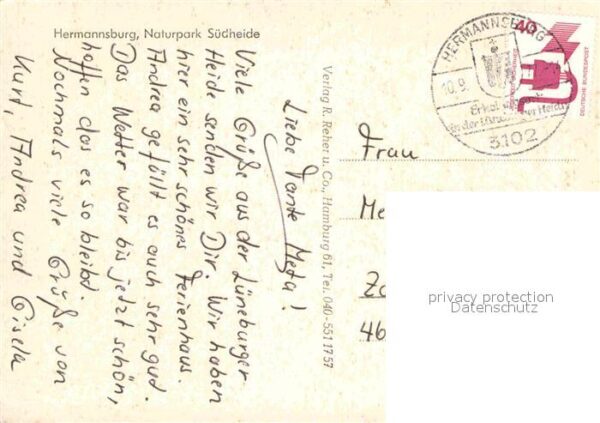 Hermannsburg, Naturpark Südheide
Liebe Tante Meta!
Viele Grüße aus der Lüneburger
Heide senden wir Dir. Wir haben
hier ein sehr schönes Ferienhaus.
Andrea gefällt es auch sehr gut.
Das Wetter war bis jetzt schön,
hoffen das es so bleibt.
Nochmals viele Grüße von
Kurt, Andrea und Gisela
Verlag R. Reher u. Co., Hamburg 61, Tel. 040-551 1757
HERMANNSBURG
10.9.
in der
3102
40
DEUTSCHE BUNDESPOST
Frau
Me
Za
46
privacy protection
Datenschutz